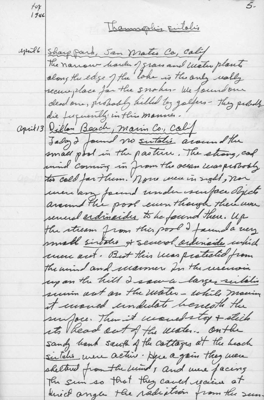 5.
1966
Thamnophis sirtalis
April 6 Sharp park, San Mateo Co., Calif
The narrow border of grass and water plants
along the edge of the lake is the only really
secure place for the snakes. We found one
dead one, probably killed by golfers - They probably
die frequently in this manner.
April 13 Dillon Beach, Marin Co., Calif
Today I found no sirtalis around the
small pool in the pasture. The strong, cool
wind coming in from the ocean was probably
too cold for them. None were in sight, nor
were any found under surface objects
around the pool even though there were
several ordinoides to be found there. Up
the stream from this pool I found a very
small sirtalis & several ordinoides which
were out. But this was protected from
the wind and warmer. In the reservoir
up on the hill I saw a large sirtalis
swim out on the water - while
it moved undulate beneath the
surface. Then it would stop & stick
its head out of the water. On the
sandy bank south of the cottages at the beach
sirtalis were active. Here again they were
sheltered from the wind, and were facing
the sun so that they could receive at
direct angles the radiation from the sun.